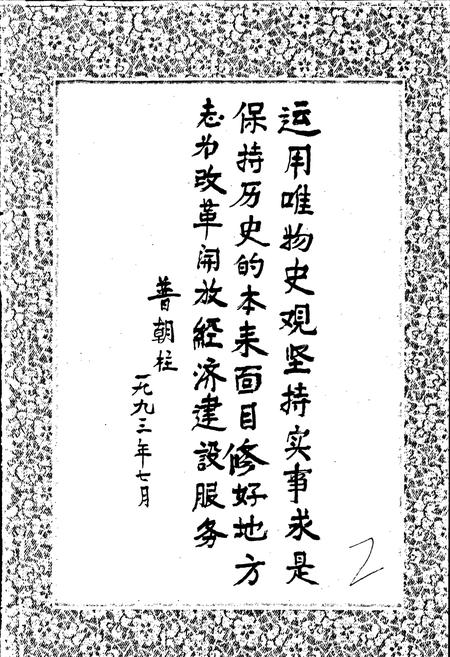 运用唯物史观坚持实事求是
保持历史的本来面目修好地方
志为改革开放经济建設服务
普朝柱
一九九三年七月
2